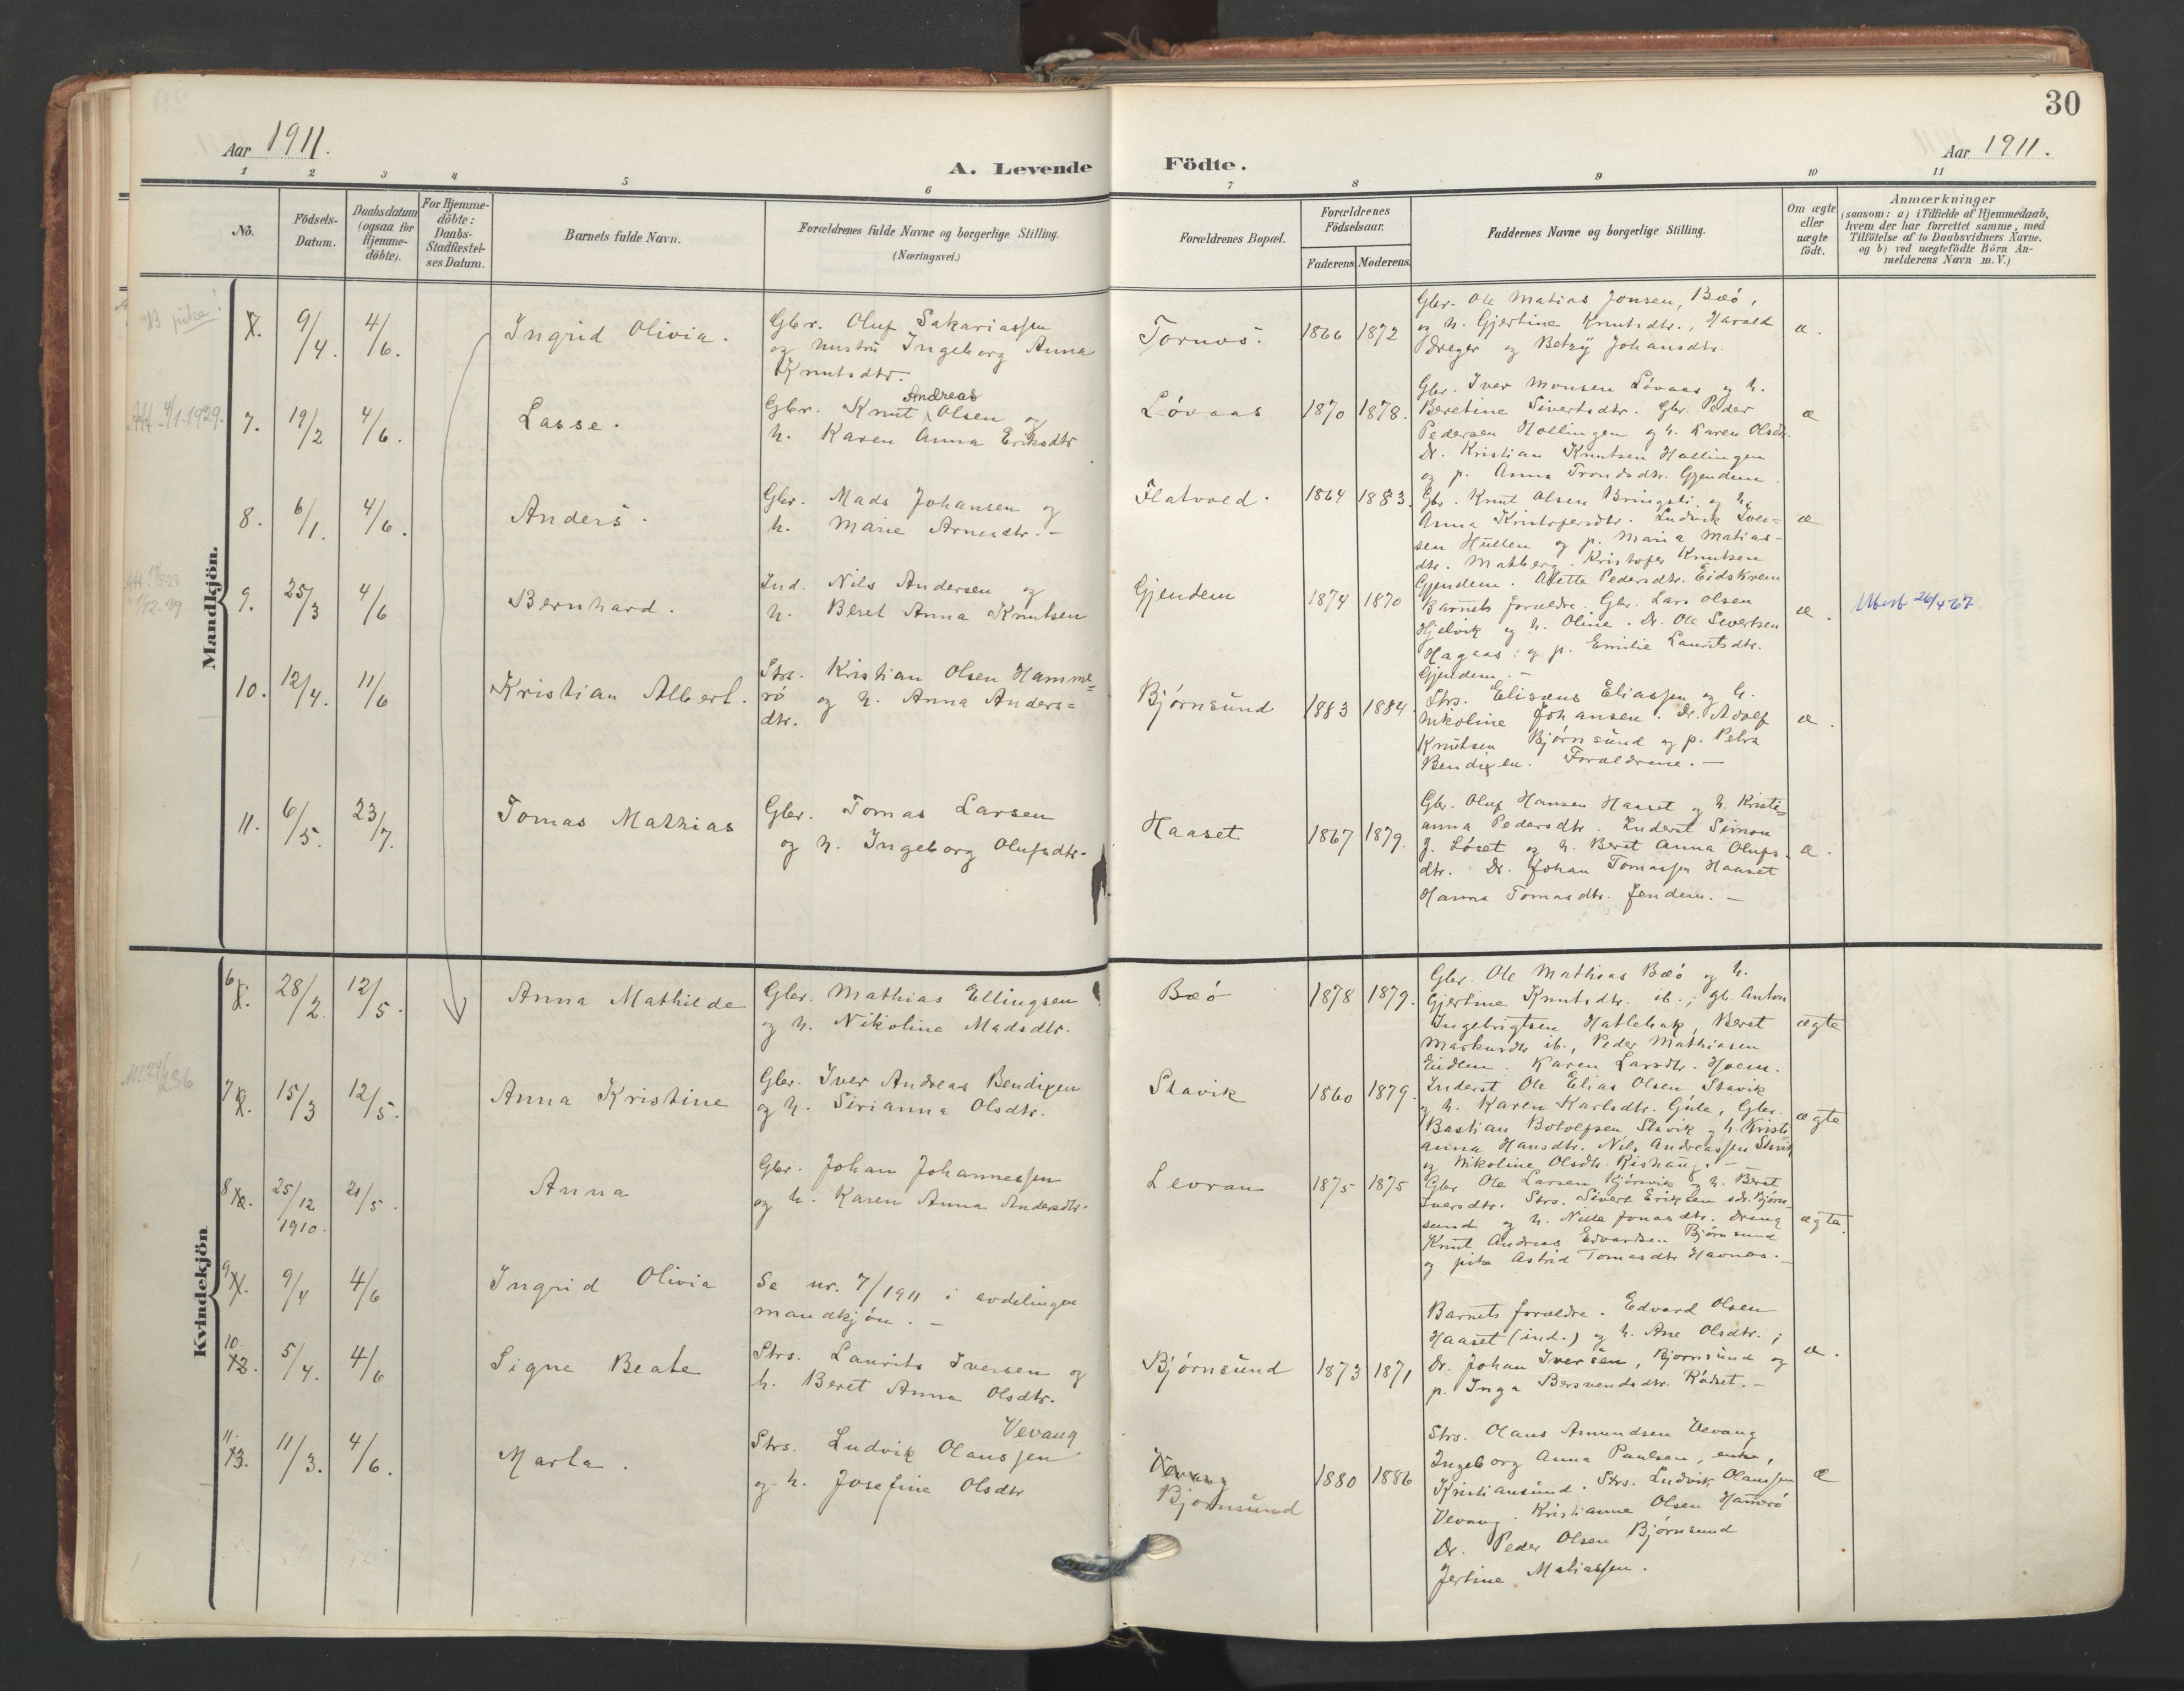 30
Aar 1911.
A. Levende Födte.
Aar 1911.
1 2 3 4 5 6 7 8 9 10 11
No.
Födsels-
Datum.
Daabsdatum
(ogsaa for
Hjemme-
döbte).
For Hjemme-
döbte:
Daabs-
Stadfæstel-
ses Datum.
Barnets fulde Navn.
Forældrenes fulde Navne og borgerlige Stilling.
(Næringsvei.)
Forældrenes Bopæl.
Forældrenes
Födselsaar.
Faderens Moderens.
Faddernes Navne og borgerlige Stilling.
Om ægte
eller
uægte
födt.
Anmærkninger
(saasom: a) i Tilfælde af Hjemmedaab,
hvem der har forrettet samme, med
Tilföielse af to Daabsvidners Navne.
og b) ved uægtefödte Börn An-
melderens Navn m. V.)
Mandkjön.
pike!
7. 9/4. 4/6. Ingrid Olivia.
Gbr. Oluf Sakariassen
og hustru Ingeborg Anna
Knutsdtr.
Tornes. 1866 1872
Gbr. Ole Matias Jonsen, Bæó,
og h. Gjertine Knutsdtr., Harald
Dreyer og Betzy Johansdtr.
æ.
Att 4/1-1929.
7. 19/2 4/6. Lasse.
Gbr. Knut Andreas Olsen og
h. Karen Anna Eriksdtr
Lóvaas 1870 1878.
Gbr. Iver Monsen Lóvaas og h.
Beretine Sivertsdtr. Gbr. Peder
Pedersen Hollingen og h. Karen Olsdtr.
Dr. Kristian Knutsen Hollingen
og p. Anna Trondsdtr. Gjendem.
æ
8. 6/1. 4/6. Anders.
Gbr. Mads Johansen og
h. Marie Arnesdtr. -
Flatvold. 1864 1883.
Gbr. Knut Olsen Bringsli og h.
Anna Kristofersdtr. Ludvik Iver-
sen Hullen og p. Maria Matias-
dtr. Malberg. Kristofer Knutsen
Gjendem. Aletta Pedersdtr. Eidskrem
æ
9. 25/3 4/6 Bernhard.
Ind. Nils Andersen og
h. Beret Anna Knutsen
Gjendem 1874 1870
Barnets forældre. Gbr. Lars Olsen
Hjelvik og h. Oline. Dr. Ole Sivertsen
Hagaas og p. Emilie Lauritsdtr.
Gjendem. -
æ.
26/4 67
10. 12/4. 11/6 Kristian Albert.
Strs. Kristian Olsen Hamme-
ró og h. Anna Anders-
dtr.
Bjórnsund 1883 1884.
Strs. Elisæus Eliassen og h.
Nikoline Johansen. Dr. Adolf
Knutsen Bjórnsund og p. Petra
Bendixen. Forældrene. -
æ.
11. 6/5. 23/7. Tomas Mathias
Gbr. Tomas Larsen
og h. Ingeborg Olufsdtr.
Haaset 1867 1879.
Gbr. Oluf Hansen Haaset og h. Kristi-
anna Pedersdtr. Inderst Simon
J. Lóset og h. Beret Anna Olufs-
dtr. Dr. Johan Tomassen Haaset
Hanna Tomasdtr. Jendem. -
æ.
Kvindekjön
6 28/2. 12/5. Anna Mathilde
Gbr. Mathias Ellingsen
og h. Nikoline Madsdtr.
Bæó 1878 1879.
Gbr. Ole Mathias Bæó og h.
Gjertine Knutsdtr. ib.; gb. Anton
Ingebrigtsen Hatlebak, Beret
Markusdtr ib., Peder Mathiasen
Karen Larsdtr. Hoem.
ægte
7 15/3 12/5. Anna Kristine
Gbr. Iver Andreas Bendixen
og h. Sirianna Olsdtr.
Stavik 1860 1879.
Inderst Ole Elias Olsen Stavik
og h. Karen Karlsdtr. Gule, Gbr.
Bastian Botolfsen Stavik og h. Kristi-
anna Hansdtr. Nils Andreassen Stavik
og Nikoline Olsdtr. -
ægte
8 25/12 1910. 21/5. Anna
Gbr. Johan Johannessen
og h. Karen Anna Andersdtr.
Levran 1875 1875
Gbr Ole Larsen og h. Beret
Iversdtr. Strs. Sivert Eriksen Bjórn-
sund og h. Nille Jonasdtr. Dreng
Knut Andreas Edvardsen Bjórnsund
og pike Astrid Tomasdtr Havnes. -
ægte.
9 9/4 4/6 Ingrid Olivia
Se nr. 7/1911 i avdelingen
mandkjón. -
10. 5/4. 4/6 Signe Beate
Strs. Laurits Iversen og
h. Beret Anna Olsdtr.
Bjórnsund 1873 1871
Barnets forældre. Edvard Olsen
Haaset (ind.) og h. Ane Olsdtr.;
Dr. Johan Iversen, Bjórnsund og
p. Inga Bersvendsdtr. Ródset. -
æ.
11. 13. 11/3. 4/6. Marta.
Strs. Ludvik Olaussen Vevang
og h. Josefine Olsdtr
Vevang
Bjórnsund
1880 1886
Strs. Olaus Amundsen Vevang
Ingeborg Anna Paulsen, enke,
Kristiansund. Strs. Ludvik Olaussen
Vevang. Kristianne Olsen Hameró
Dr. Peder Olsen Bjórnsund
Jertine Matiassen.
Æ